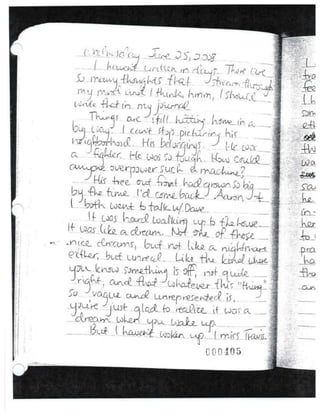 Wednesday June 25, 2008
I haven't written in days. There are
so many thoughts that stream through
my mind and I think, hmm, I should
write that in my journal.
Things are still hitting home in a
big way. I can't stop picturing his
neighborhood. His belongings. He was
a fighter. He was so tough. How could
anyone overpower such a machine?
His tree out front had grown so big
by the time I'd come back. Aaron &
I both went to talk w/ Dave.
It was hard walking up to the house.
It was like a dream. Not one of those
nice dreams, but not like a nightmare
either, but unreal. Like the kind where
you know something is off, not quite
right, and that whatever this "thing"
so vague and unrepresented is,
you're just glad to realize it was a
dream when you wake up.
But I haven't woken up. I miss Travis.
000405